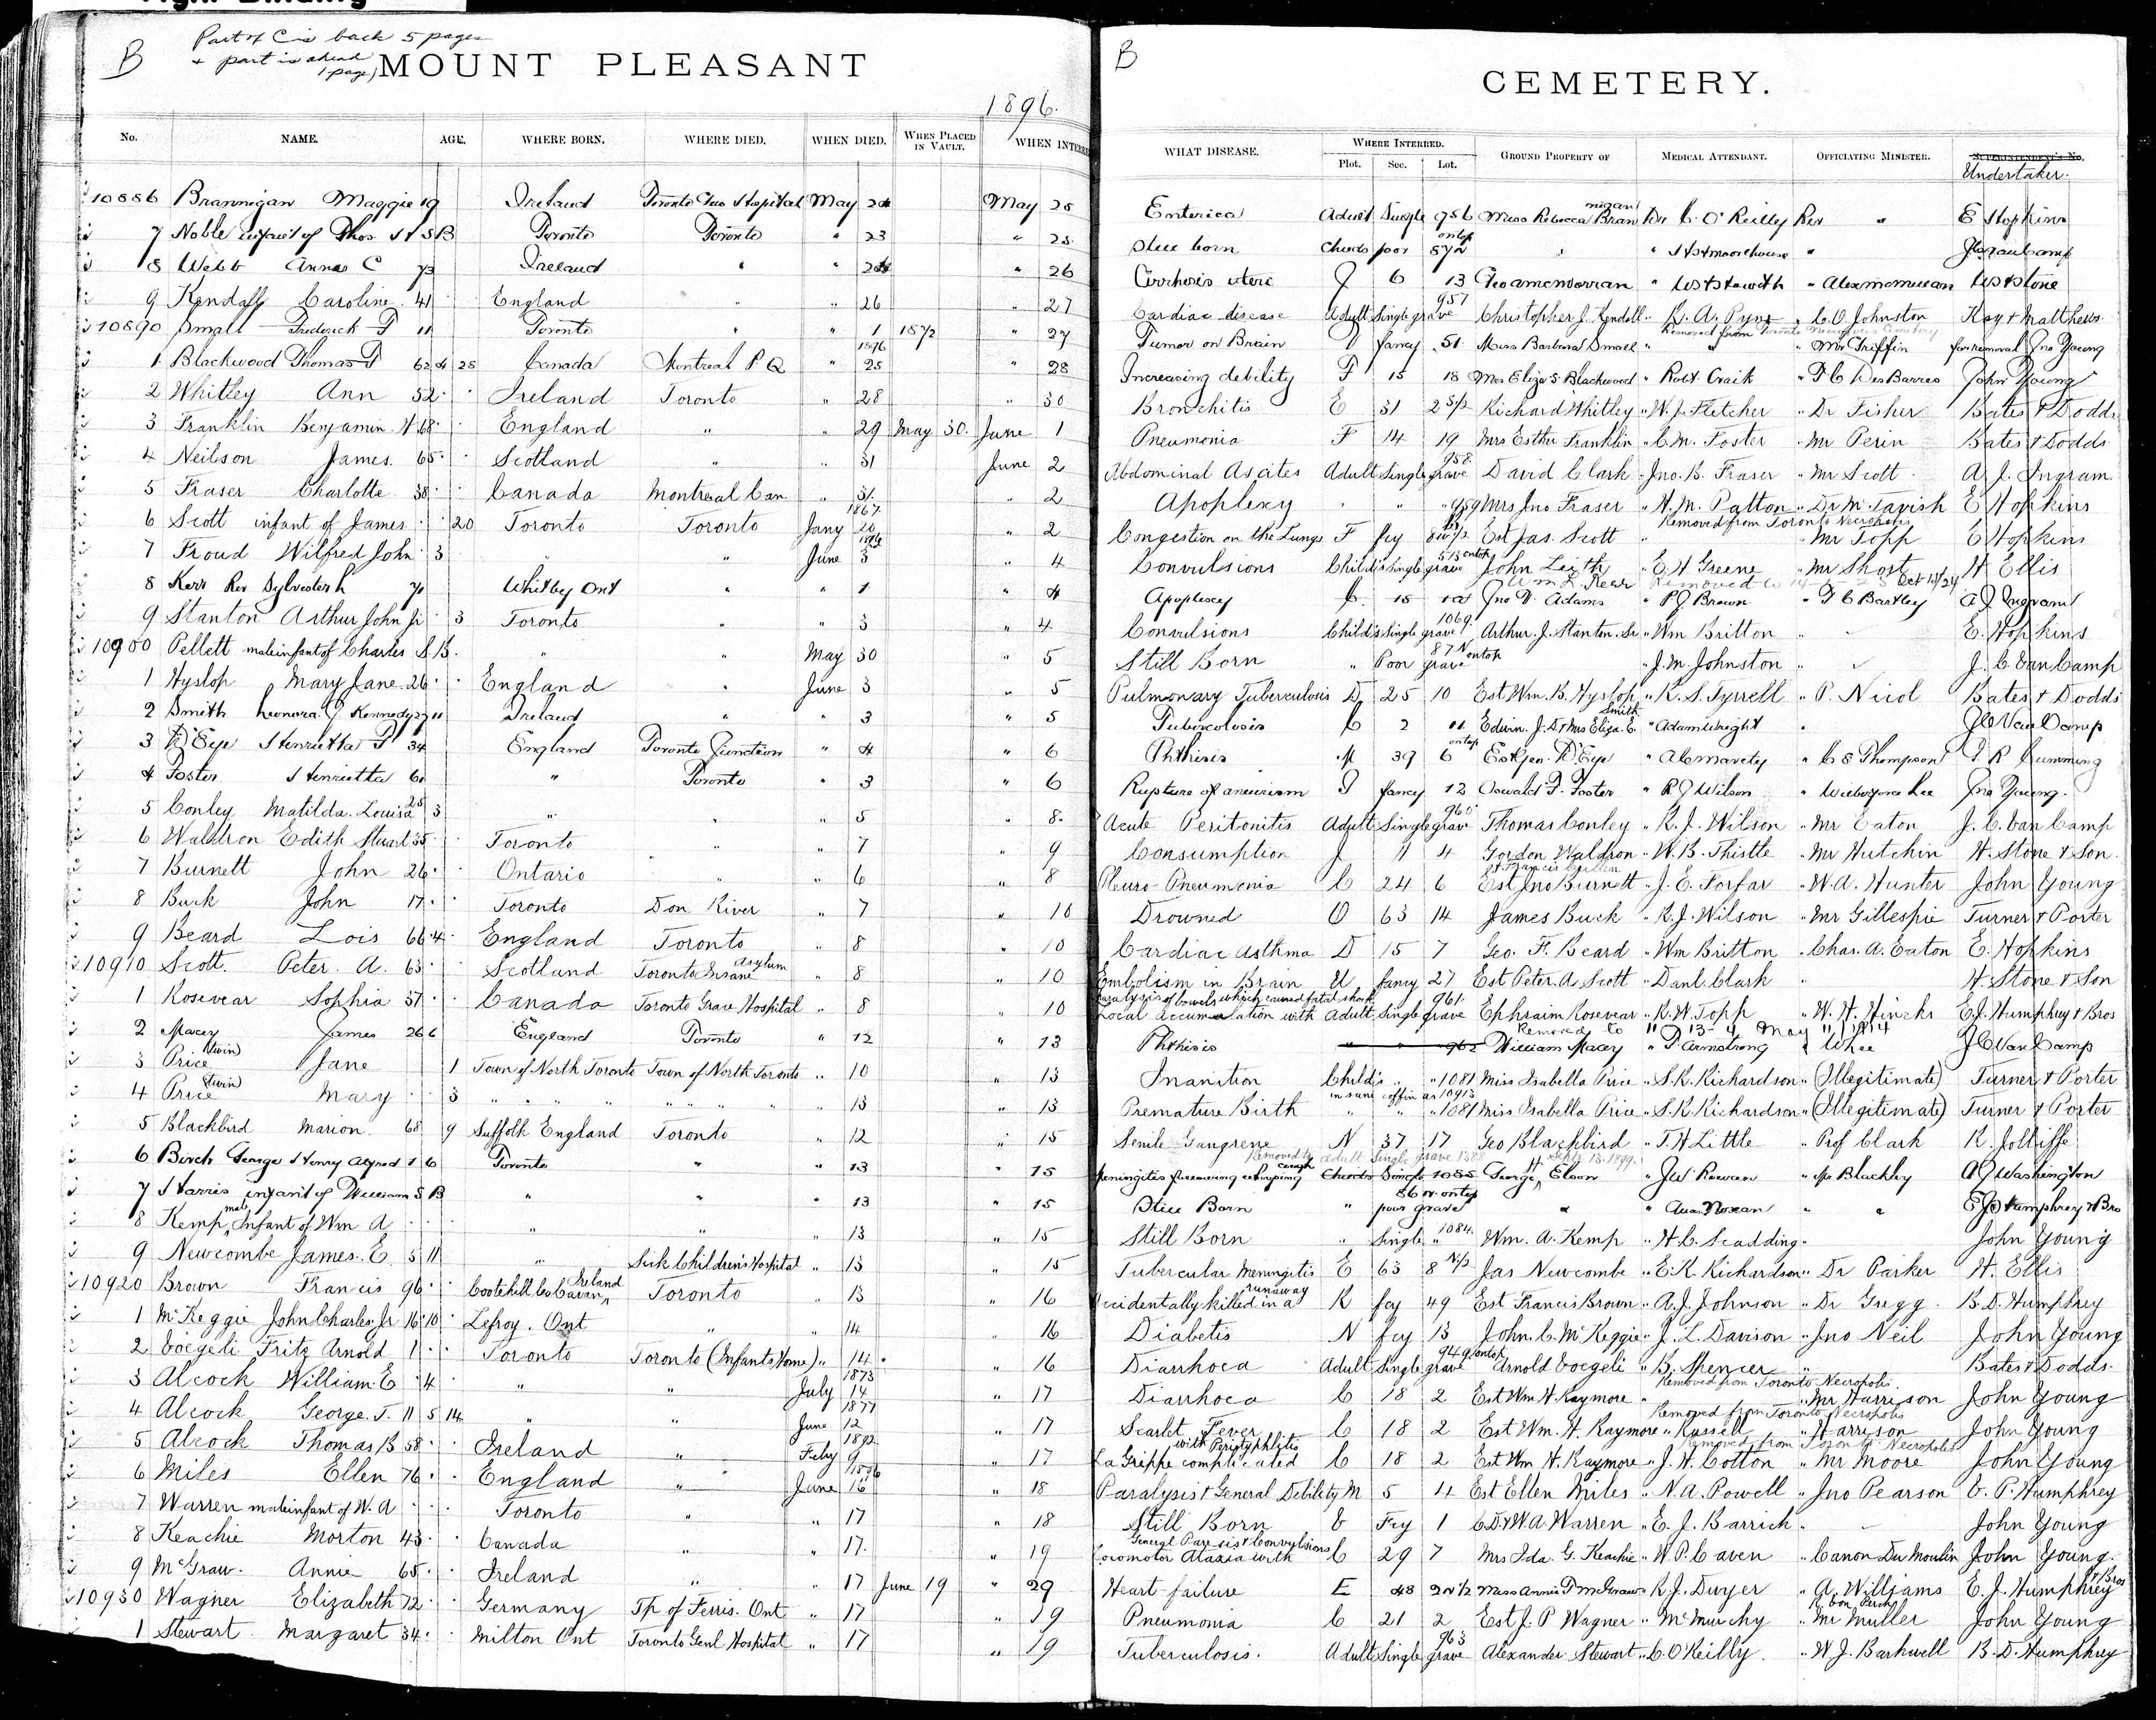 B
Part of C is back 5 pages
+ part is ahead
1 page)
MOUNT PLEASANT
1896.
No. NAME. AGE. WHERE BORN. WHERE DIED. WHEN DIED. WHEN PLACED IN VAULT. WHEN INTERRE
10886 Brannigan Maggie 19 Ireland Toronto Gen Hospital May 24 May 25
7 Noble infant of Thos. H S B Toronto Toronto " 23 " 25
8 Webb Anna C 73 Ireland " " 24 " 26
9 Kendall Caroline 41 England " " 26 " 27
10890 Small Frederick F 11 Toronto " " 1 1872 " 27
1 Blackwood Thomas F 62 4 28 Canada Montreal P Q " 1896 25 " 28
2 Whitley Ann 52 Ireland Toronto " 28 " 30
3 Franklin Benjamin H 68 England " " 29 May 30. June 1
4 Neilson James. 65 Scotland " " 31 June 2
5 Fraser Charlotte 38 Canada Montreal Can " 31. " 2
6 Scott infant of James 20 Toronto Toronto Jany 1867 20 " 2
7 Froud Wilfred John 3 " " June 1896 3 " 4
8 Kerr Rev Sylvester h 71 Whitby Ont " " 1 " 4
9 Stanton Arthur John Jr 3 Toronto " " 3 " 4
10900 Pellett male infant of Charles S.B. " " May 30 " 5
1 Hyslop Mary Jane 26 England " June 3 " 5
2 Smith Leonora J Kennedy 27 11 Ireland " " 3 " 5
3 D'Eye Henrietta F 34 England Toronto Junction " 4 " 6
4 Foster Henrietta 61 " Toronto " 3 " 6
5 Conley Matilda Louisa 25 3 " " " 5 " 8
6 Waldron Edith Stuart 35 Toronto " " 7 " 9
7 Burnett John 26 Ontario " " 6 " 8
8 Buck John 17 Toronto Don River " 7 " 10
9 Beard Lois 66 4 England Toronto " 8 " 10
10910 Scott. Peter. A. 63 Scotland Toronto Insane Asylum " 8 " 10
1 Rosevear Sophia 57 Canada Toronto Grace Hospital " 8 " 10
2 Macey James 26 6 England Toronto " 12 " 13
3 Price (twin) Jane 1 Town of North Toronto Town of North Toronto " 10 " 13
4 Price (twin) Mary 3 " " " " " " " " " 13 " 13
5 Blackbird Marion 68 9 Suffolk England Toronto " 12 " 15
6 Burch George Henry Alfred 1 6 Toronto " " 13 " 15
7 Harris infant of William S B " " " 13 " 15
8 Kemp male Infant of Wm A " " " 13 " 15
9 Newcombe James. E. 5 11 " Sick Childrens Hospital " 13 " 15
10920 Brown Francis 96 Cootehill Co Cavan Ireland Toronto " 13 " 16
1 McKeggie John Charles Jr 16 10 Lefroy. Ont " " 14 " 16
2 Voegeli Fritz Arnold 1 Toronto Toronto (Infants Home) " 14 " 16
3 Alcock William. E 4 " " July 1873 14 " 17
4 Alcock George. T. 11 5 14 " " June 1877 12 " 17
5 Alcock Thomas B 58 Ireland " Feby 1892 9 " 17
6 Miles Ellen 76 England " June 1896 16 " 18
7 Warren male infant of W. A Toronto " " 17 " 18
8 Keachie Morton 43 Canada " " 17 " 19
9 McGraw. Annie 65 Ireland " " 17 June 19 " 29
10930 Wagner Elizabeth 72 Germany Tp of Ferris. Ont " 17 " 19
1 Stewart Margaret 34 Milton Ont Toronto Genl Hospital " 17 " 19
B
CEMETERY.
WHAT DISEASE. WHERE INTERRED. Plot. Sec. Lot. GROUND PROPERTY OF MEDICAL ATTENDANT. OFFICIATING MINISTER. SUPERINTENDENT'S NO.
Undertaker.
Enterica Adult Single 956 Miss Rebecca Brannigan Dr C. O'Reilly Rev " E Hopkins
Still born Childs poor 872 on top " " " J C VanCamp
Cirrhosis uteri J 6 13 " " Alex McMillan W H Stone
Cardiac disease Adult Single grave 957 Christopher J. Kendall " R. A. Pyne " C. O. Johnston Kay & Matthews
Removed from Toronto Cemetery
Tumor on Brain D fancy 51 Miss Barbara Small " " Mr Griffin for removal Jno Young
Increasing debility F 15 18 Mrs Eliza S Blackwood " Robt Craik " F C DesBarres John Young
Bronchitis E 31 2 S½ Richard Whitley " W. J. Fletcher " Dr Fisher Bates & Dodds
Pneumonia F 14 19 Mrs Esther Franklin " C. M. Foster " Mr Perin Bates & Dodds
Abdominal Ascites Adult Single grave 958 David Clark " Jno. B. Fraser " Mr Scott A. J. Ingram
Apoplexy " " " 959 Mrs Jno Fraser " H. M. Patton " Dr McTavish E Hopkins
Removed from Toronto Necropolis
Congestion on the Lungs F fcy Est Jas. Scott " " Mr Topp E Hopkins
Convulsions Childs Single grave 513 on top John Leith " E. H Greene " Mr Short H Ellis
Apoplexy C 15 10 Jno D. Adams " P. J Brown " F C Bartley A J Ingram
Convulsions Childs Single grave 1069 Arthur. J. Stanton. Sr " Wm Britton " E. Hopkins
Still Born " Poor grave 87 N on top " J. M. Johnston " J. C. VanCamp
Pulmonary Tuberculosis D 25 10 Est Wm. B. Hyslop " R. S. Tyrrell " P. Nicol Bates & Dodds
Tuberculosis C 2 11 Edwin. J. D & Mrs Eliza. E. Smith " Adam Wright " J C VanCamp
Phthisis M 39 6 on top Est Geo. D'Eye " " C S Thompson F. R Cumming
Rupture of aneurism D fancy 12 Oswald F. Foster " R J Wilson " Wilberforce Lee Jno Young.
Acute Peritonitis Adult Single grave 960 Thomas Conley " R. J. Wilson " Mr Eaton J. C. VanCamp
Consumption J 11 4 Gordon Waldron " W. B. Thistle " Mr Hutchin H. Stone & Son
Pleuro-Pneumonia C 24 6 Est Jno Burnett " J. E. Forfar " W. A. Hunter John Young
Drowned O 63 14 James Buck " R. J. Wilson " Mr Gillespie Turner & Porter
Cardiac Asthma D 15 7 Geo. F. Beard " Wm Britton " Chas. A. Eaton E. Hopkins
Embolism in Brain U fancy 27 Est Peter. A. Scott " Danl Clark " H. Stone & Son
Paralysis of bowels which caused fatal shock
Local accumulation with Adult Single grave 961 Ephraim Rosevear " R. W. Topp " W. H. Hincks E. J. Humphrey & Bros
Removed to " D 13-4 May 11/1914
Phthisis " " 962 William Macey " F. Armstrong J C VanCamp
Inanition Childs " " 1081 Miss Isabella Price " S. R. Richardson " (Illegitimate) Turner & Porter
in same coffin as 10913
Premature Birth " " " 1081 Miss Isabella Price " S. R. Richardson " (Illegitimate) Turner & Porter
Senile Gangrene N 37 17 Geo Blackbird " T. H Little " Prof Clark R. Jolliffe
Removed to Adult Single grave Septr 13. 1899
Meningitis following whooping cough Childs Single 1085 George H Eloon " J W Rowan " Mr Blachley A J Washington
Still Born " poor grave 86 N on top " " " E J Humphrey & Bro
Still Born " Single " 1084 Wm. A. Kemp " H. C. Scadding " John Young
Tubercular Meningitis E 63 8 N½ Jas Newcombe " E. R. Richardson " Dr Parker H. Ellis
Accidentally killed in a runaway K fcy 49 Est Francis Brown " A. J. Johnson " Dr Gregg B. D. Humphrey
Diabetis N fcy 13 John. C. McKeggie " J. L. Davison " Jno Neil John Young
Diarrhoea Adult Single grave 949 on top Arnold Voegeli " B. Spencer " Bates & Dodds
Removed from Toronto Necropolis
Diarrhoea C 18 2 Est Wm H. Raymore " " Mr Harrison John Young
Removed from Toronto Necropolis
Scarlet Fever C 18 2 Est Wm. H. Raymore " Russell " Harrison John Young
Removed from Toronto Necropolis
La Grippe complicated with Perityphlitis C 18 2 Est Wm H. Raymore " J. H. Cotton " Mr Moore John Young
Paralysis & General Debility M 5 4 Est Ellen Miles " N. A. Powell " Jno Pearson B. D. Humphrey
Still Born V Fcy 1 C. D. & W. A Warren " E. J. Barrick " John Young
General Paresis & Convulsions
Locomotor Ataxia with C 29 7 Mrs Ida. G. Keachie " W. P. Caven " Canon Du Moulin John Young
Heart failure E 48 Miss Annie F McGraw " R. J. Dwyer " A. Williams E. J. Humphrey & Bros
Pneumonia C 21 2 Est J. P Wagner " McMurchy " Mr Muller John Young
Tuberculosis. Adult Single grave 963 Alexander Stewart " C. O'Reilly " W. J. Barkwell B. D. Humphrey